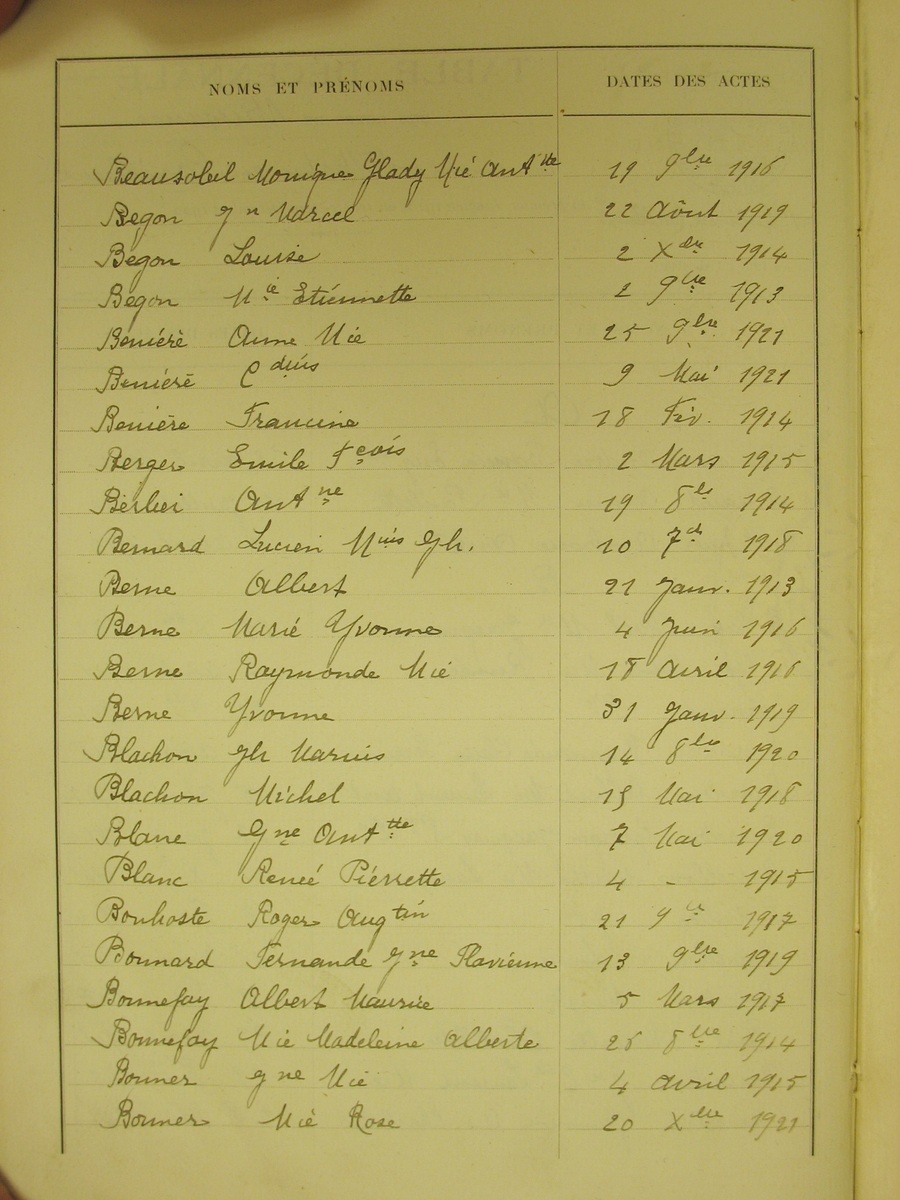 NOMS ET PRÉNOMS DATES DES ACTES
Beausoleil Monique Glady Mié Anttte 19 9bre 1916
Begon Jn Marcel 22 Août 1919
Begon Louise 2 Xbre 1914
Begon Mie Etiennette 2 9bre 1913
Benière Anne Mie 25 9bre 1921
Benière Cdius 9 Mai 1921
Benière Francine 18 Fév. 1914
Berger Emile Fçois 2 Mars 1915
Berlier Antne 19 8bre 1914
Bernard Lucien Mius Jh. 10 7bre 1918
Berne Albert 21 Janv. 1913
Berne Marie Yvonne 4 Juin 1916
Berne Raymonde Mie 18 Avril 1916
Berne Yvonne 31 Janv. 1919
Blachon Jh Marius 14 8bre 1920
Blachon Michel 15 Mai 1918
Blanc Jne Anttte 7 Mai 1920
Blanc Renée Pierrette 4 - 1915
Bonhoste Roger Augtin 21 9bre 1917
Bonnard Fernande Jne Flavienne 13 9bre 1919
Bonnefoy Albert Maurice 5 Mars 1917
Bonnefoy Mie Madeleine Alberte 26 8bre 1914
Bonner Jne Mie 4 Avril 1915
Bonner Mie Rose 20 Xbre 1921